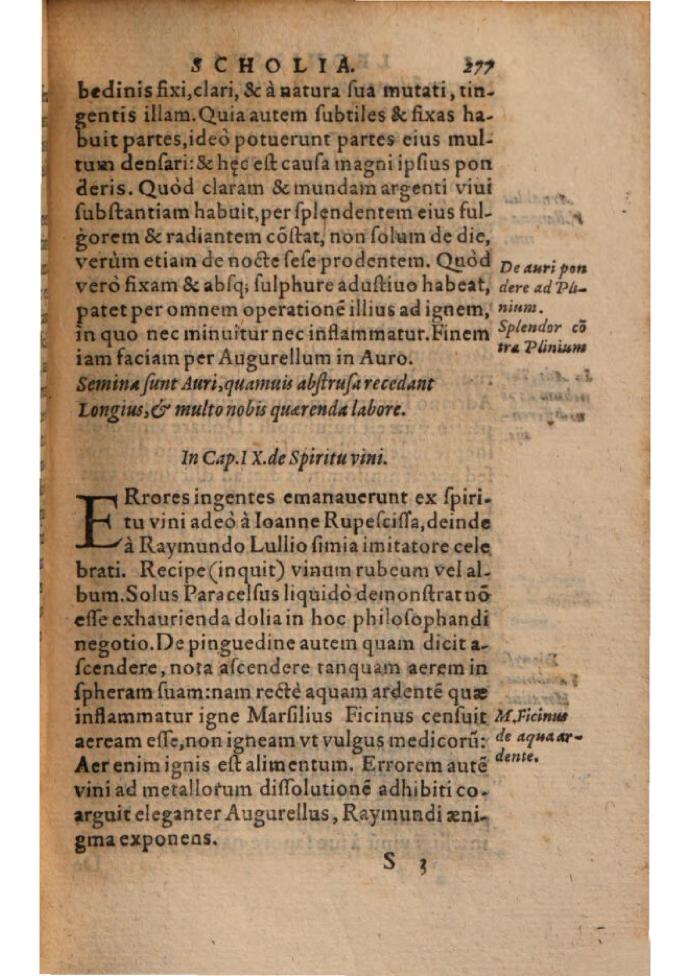 SCHOLIA. 277
bedinis fixi,clari, & à natura ſua mutati, tin-
gentis illam. Quia autem ſubtiles & fixas ha-
buit partes,ideò potuerunt partes eius mul-
tum denſari: & hęc eſt cauſa magni ipſius pon
deris. Quòd claram & mundam argenti viui
ſubſtantiam habuit,per ſplendentem eius ful-
gorem & radiantem cõſtat, non ſolum de die,
verùm etiam de nocte ſeſe prodentem. Quòd
verò fixam & abſq; ſulphure aduſtiuo habeat,
patet per omnem operationẽ illius ad ignem,
in quo nec minuitur nec inflammatur. Finem
iam faciam per Augurellum in Auro.
De auri pon
dere ad Pli-
nium.
Splendor cõ
tra Plinium
Semina ſunt Auri,quamuis abſtruſa recedant
Longius,& multo nobis quærenda labore.
In Cap. IX. de Spiritu vini.
ERrores ingentes emanauerunt ex ſpiri-
tu vini adeò à Ioanne Rupeſciſſa, deinde
à Raymundo Lullio ſimia imitatore cele
brati. Recipe (inquit) vinum rubeum vel al-
bum. Solus Paracelſus liquidò demonſtrat nõ
eſſe exhaurienda dolia in hoc philoſophandi
negotio. De pinguedine autem quam dicit a-
ſcendere, nota aſcendere tanquam aerem in
ſpheram ſuam: nam rectè aquam ardentẽ quæ
inflammatur igne Marſilius Ficinus cenſuit
aeream eſſe, non igneam vt vulgus medicorũ:
Aer enim ignis eſt alimentum. Errorem autẽ
vini ad metallorum diſſolutionẽ adhibiti co-
arguit eleganter Augurellus, Raymundi æni-
gma exponens.
M. Ficinus
de aqua ar-
dente.
S 3